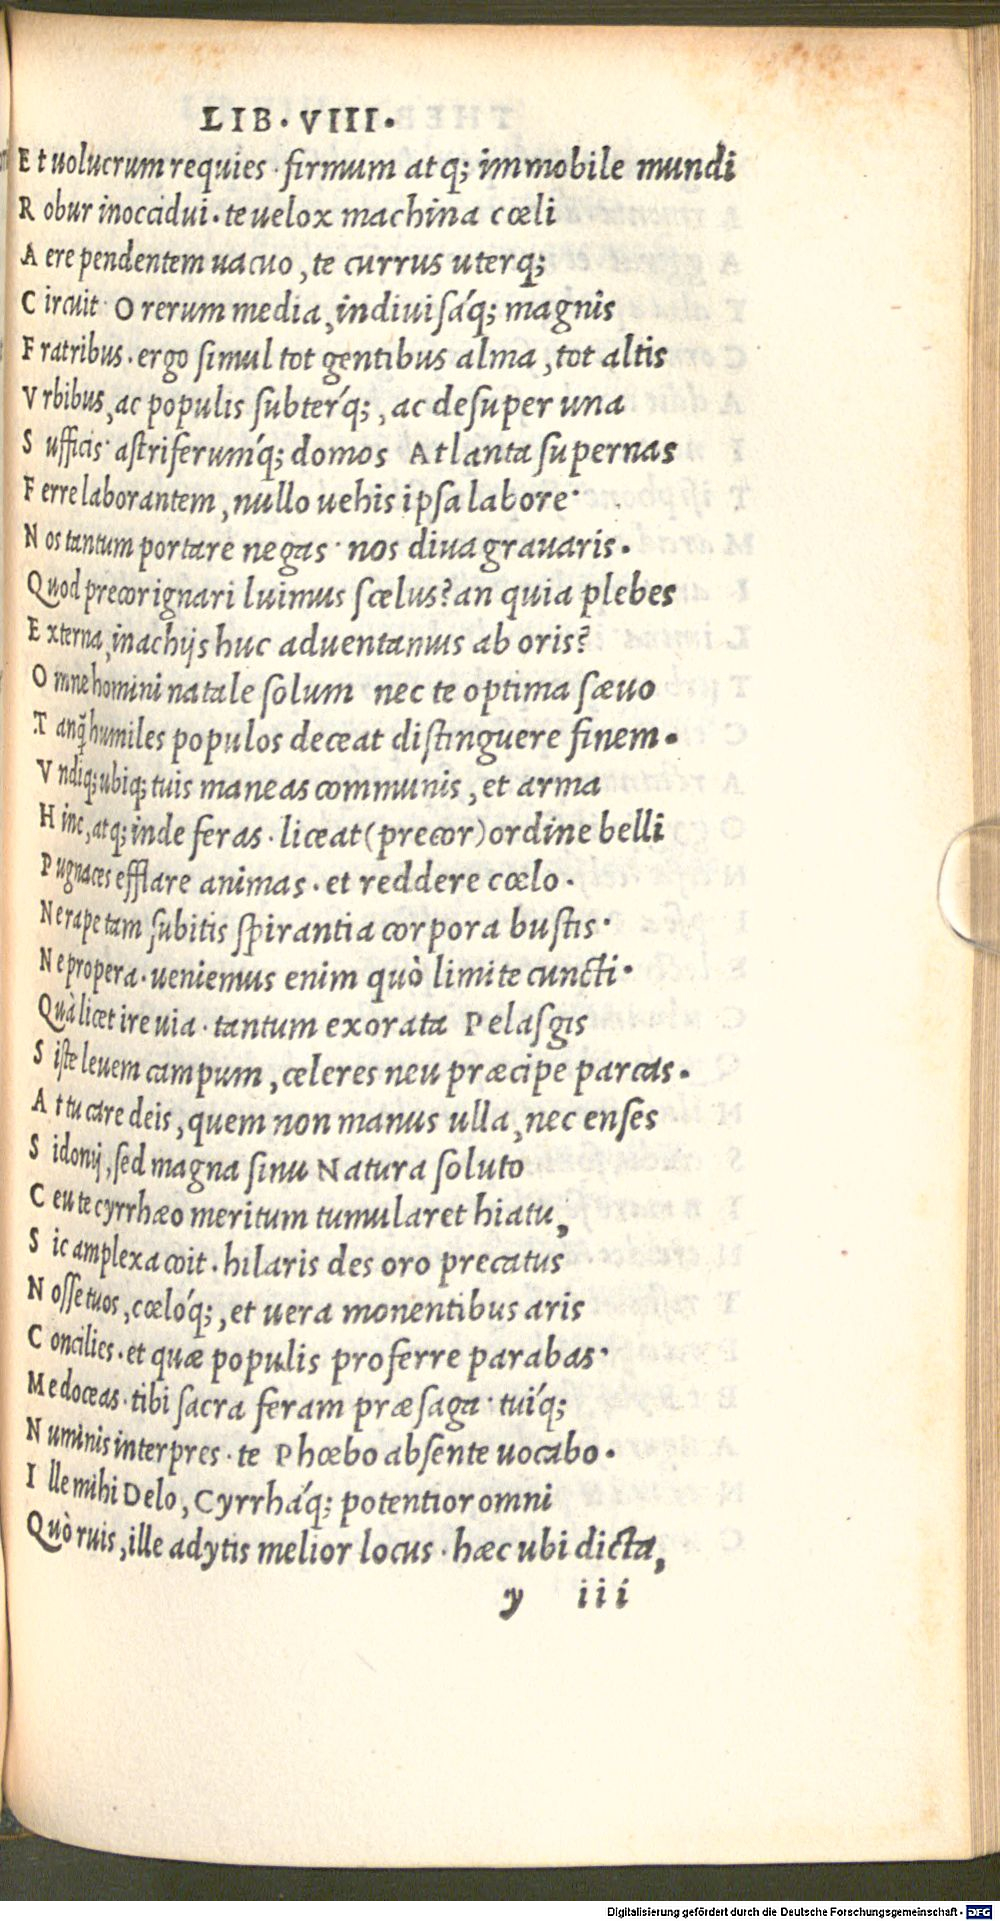 LIB. VIII.
E t uolucrum requies . firmum atq; immobile mundi
R obur inoccidui . te uelox machina cœli
A ere pendentem uacuo, te currus uterq;
C ircuit· O rerum media, indiuisáq; magnis
F ratribus . ergo simul tot gentibus alma, tot altis
V rbibus, ac populis subteŕq;, ac desuper una
S ufficis· astriferumq́; domos Atlanta supernas
F erre laborantem, nullo uehis ipsa labore·
N os tantum portare negas· nos diua grauaris.
Quod precor ignari luimus scelus? an quia plebes
E xterna, inachijs huc aduentamus ab oris?
O mne homini natale solum nec te optima sæuo
T anq̃ humiles populos deceat distinguere finem.
V ndiq; ubiq; tuis maneas communis, et arma
H inc, atq; inde feras . liceat (precor) ordine belli
P ugnaces efflare animas . et reddere cœlo.
N e rape tam subitis spirantia corpora bustis·
N e propera . ueniemus enim quò limite cuncti·
Quà licet ire uia . tantum exorata Pelasgis
S iste leuem campum, celeres neu præcipe parcas.
A t tu care deis, quem non manus ulla, nec enses
S idonij, sed magna sinu Natura soluto
C eu te cyrrhæo meritum tumularet hiatu,
S ic amplexa coit . hilaris des oro precatus
N osse tuos, cœlóq;, et uera monentibus aris
C oncilies . et quæ populis proferre parabas·
M e doceas . tibi sacra feram præsaga· tuíq;
N uminis interpres . te Phœbo absente uocabo.
I lle mihi Delo, Cyrrháq; potentior omni
Quò ruis, ille adytis melior locus . hæc ubi dicta,
y iii
Digitalisierung gefördert durch die Deutsche Forschungsgemeinschaft - DFG